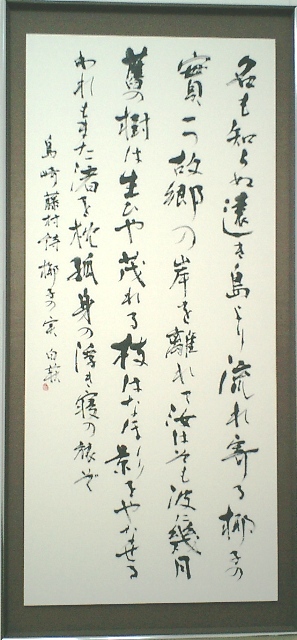 名も知らぬ遠き島より流れ寄る椰子の
實一つ故郷の岸を離れて汝はそも波に幾月
舊の樹は生ひや茂れる枝はなほ影をやなせる
われもまた渚を枕孤身の浮き寝の旅ぞ
島崎藤村詩 椰子の実 白蘇